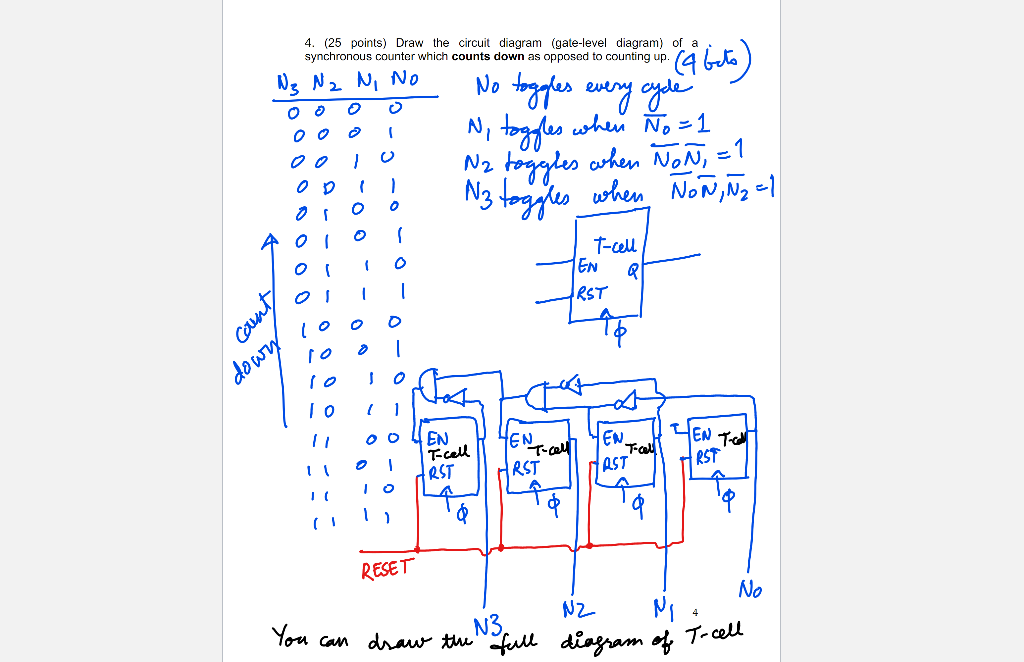 4. (25 points) Draw the circuit diagram (gate-level diagram) of a
synchronous counter which counts down as opposed to counting up. (4 bits)
N3 N2 N1 N0
0 0 0 0
0 0 0 1
0 0 1 0
0 0 1 1
0 1 0 0
0 1 0 1
0 1 1 0
0 1 1 1
1 0 0 0
1 0 0 1
1 0 1 0
1 0 1 1
1 1 0 0
1 1 0 1
1 1 1 0
1 1 1 1
count
down
N0 toggles every cycle
N1 toggles when N̅0 = 1
N2 toggles when N̅0 N̅1 = 1
N3 toggles when N̅0 N̅1 N̅2 = 1
T-cell
EN Q
RST
ϕ
EN
T-cell
RST
ϕ
EN
T-cell
RST
ϕ
EN
T-cell
RST
ϕ
1
EN T-cell
RST
ϕ
RESET
N3
N2
N1
N0
4
You can draw the full diagram of T-cell